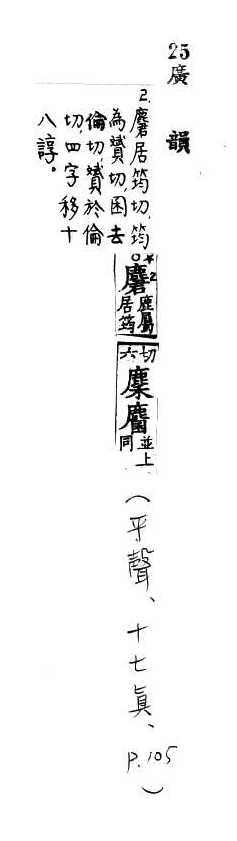 25廣韻
2.麏居筠切,筠
為贇切,囷去
倫切,贇於倫
切,四字移十
八諄。
*2
○麏鹿屬
居筠
切
六
麇麕並上
同
(平聲、十七眞、P.105)